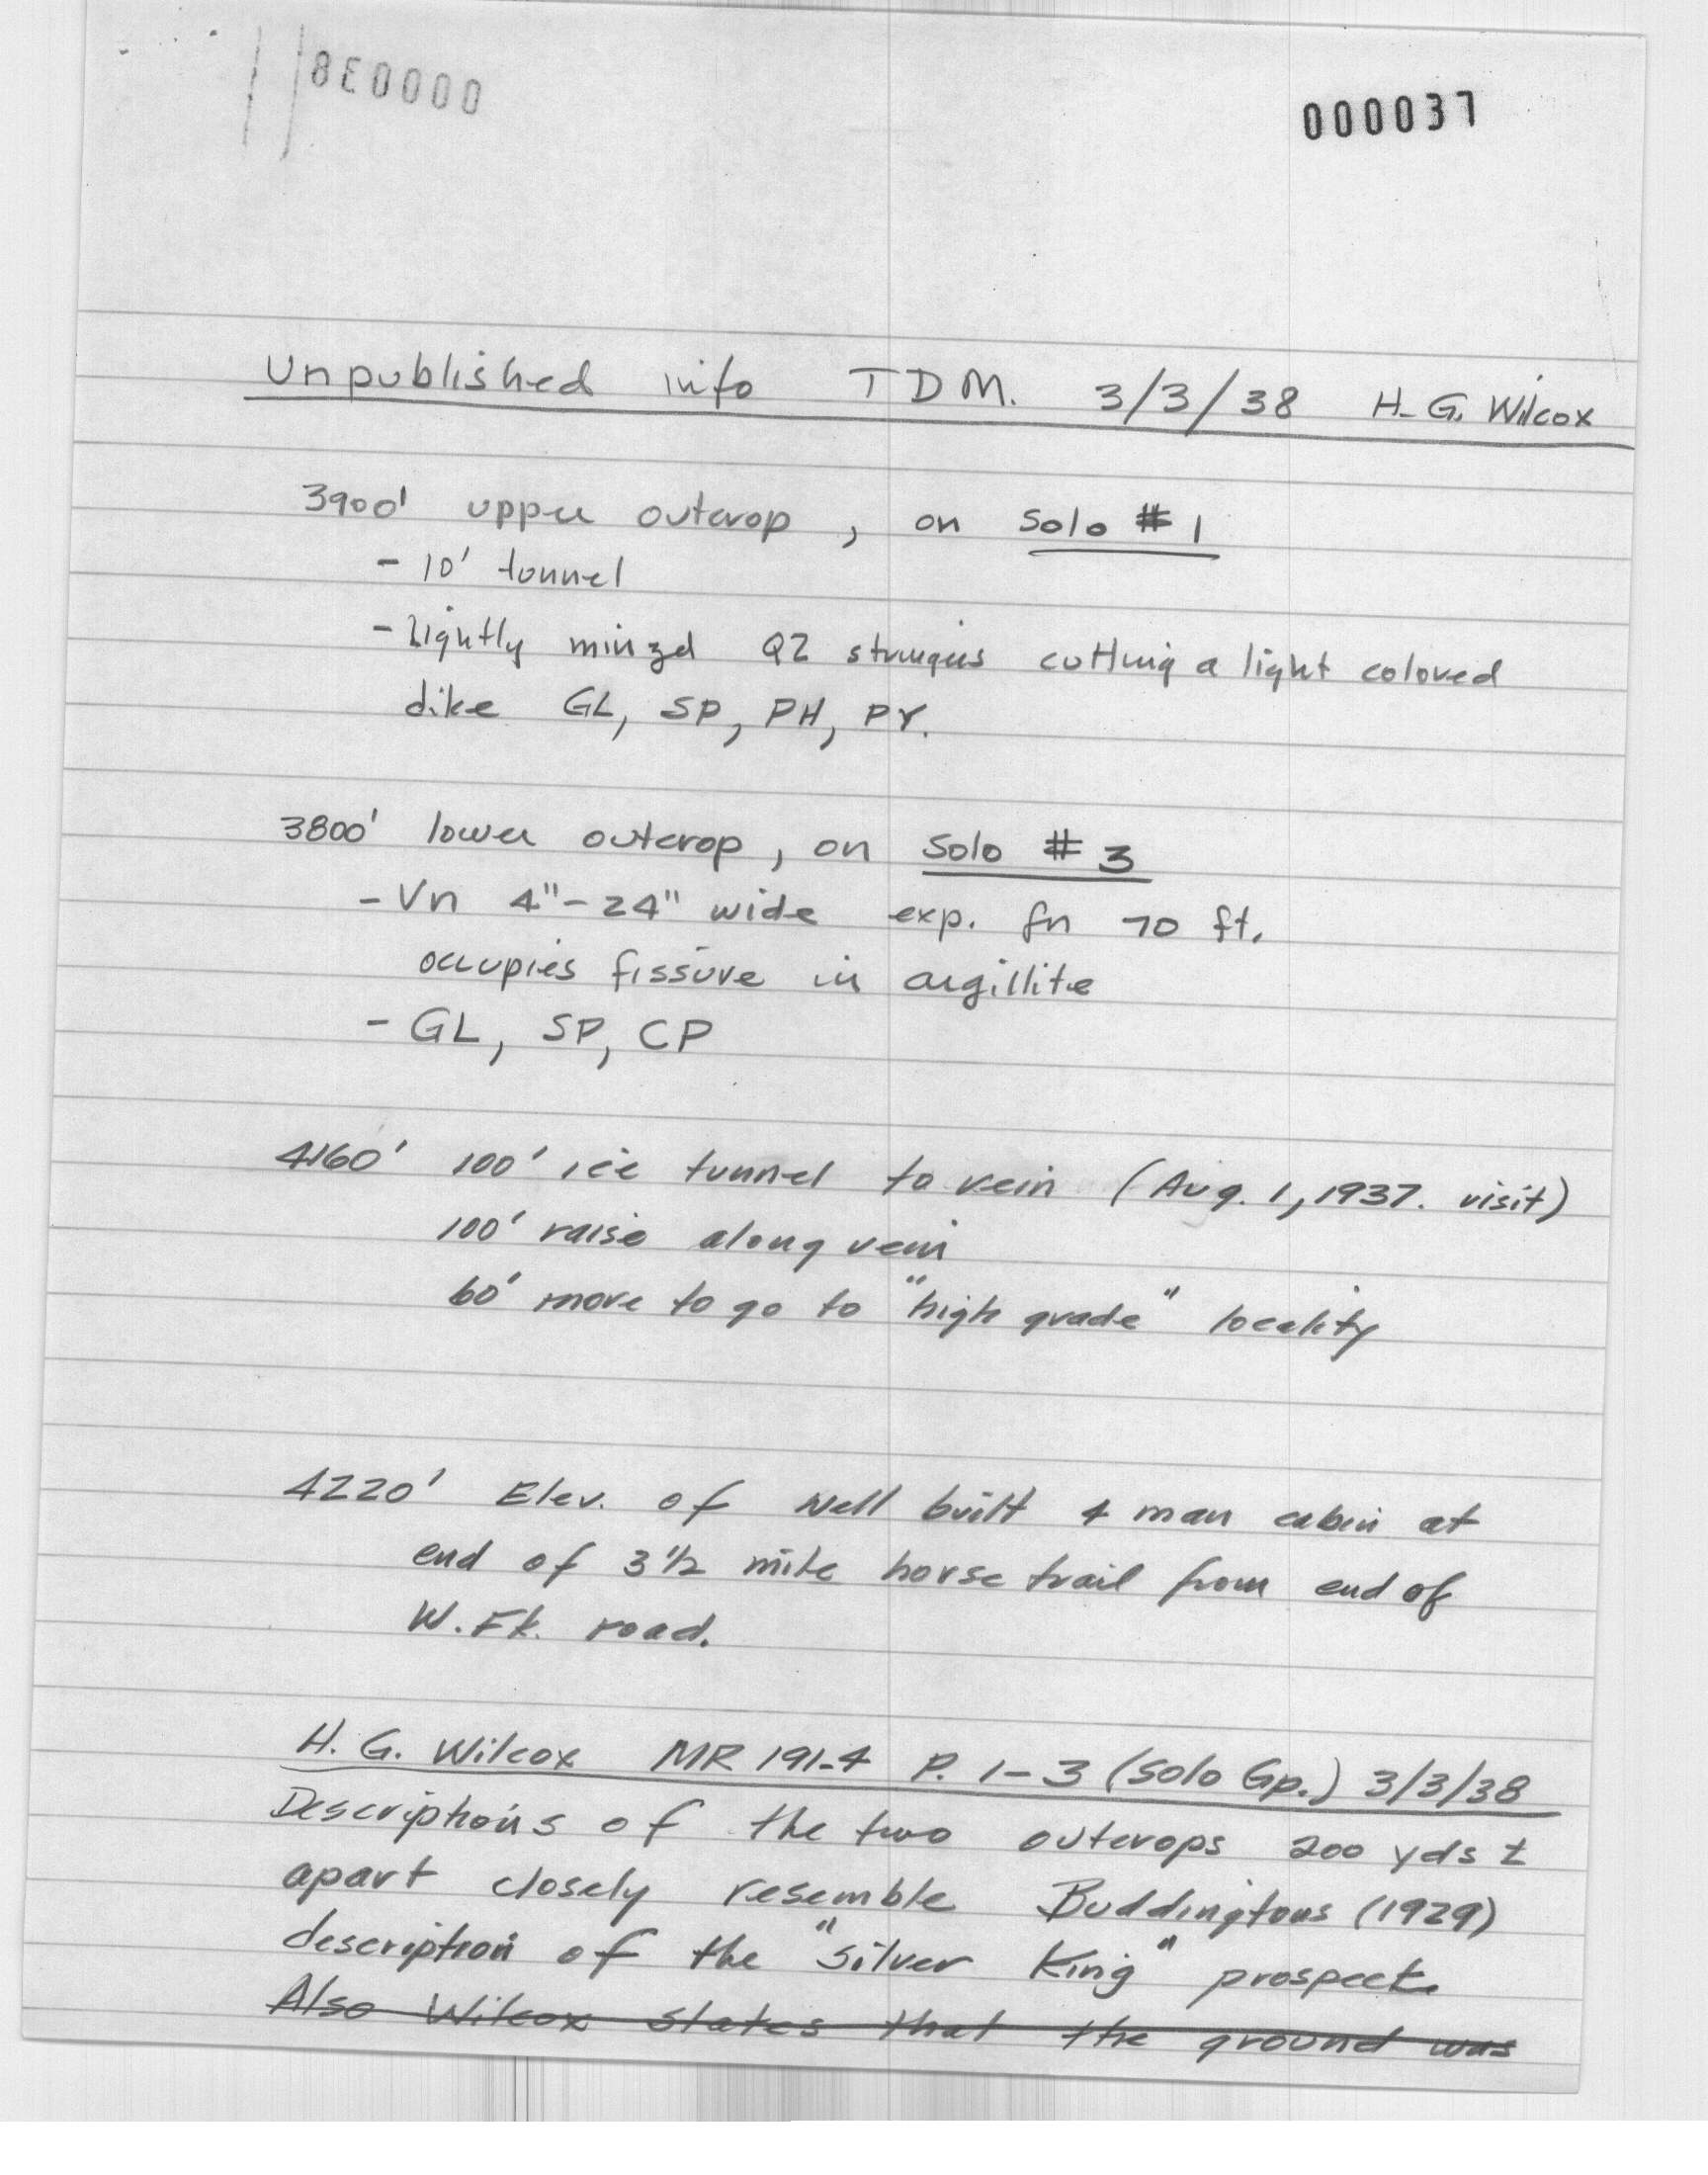 000038
000037
Unpublished info TDM. 3/3/38 H-G. Wilcox
3900' upper outcrop, on Solo #1
- 10' tunnel
- Lightly minzd QZ stringers cutting a light colored
dike GL, SP, PH, PY.
3800' lower outcrop, on Solo #3
- Vn 4"-24" wide exp. for 70 ft.
occupies fissure in argillite
- GL, SP, CP
4160' 100' ice tunnel to vein (Aug. 1, 1937. visit)
100' raise along vein
60' more to go to "high grade" locality
4220' Elev. of well built 4 man cabin at
end of 3 1/2 mile horse trail from end of
W. Fk. road.
H. G. Wilcox MR 191-4 P. 1-3 (Solo Gp.) 3/3/38
Descriptions of the two outcrops 200 yds ±
apart closely resemble Buddingtons (1929)
description of the "Silver King" prospect.
Also Wilcox states that the ground was